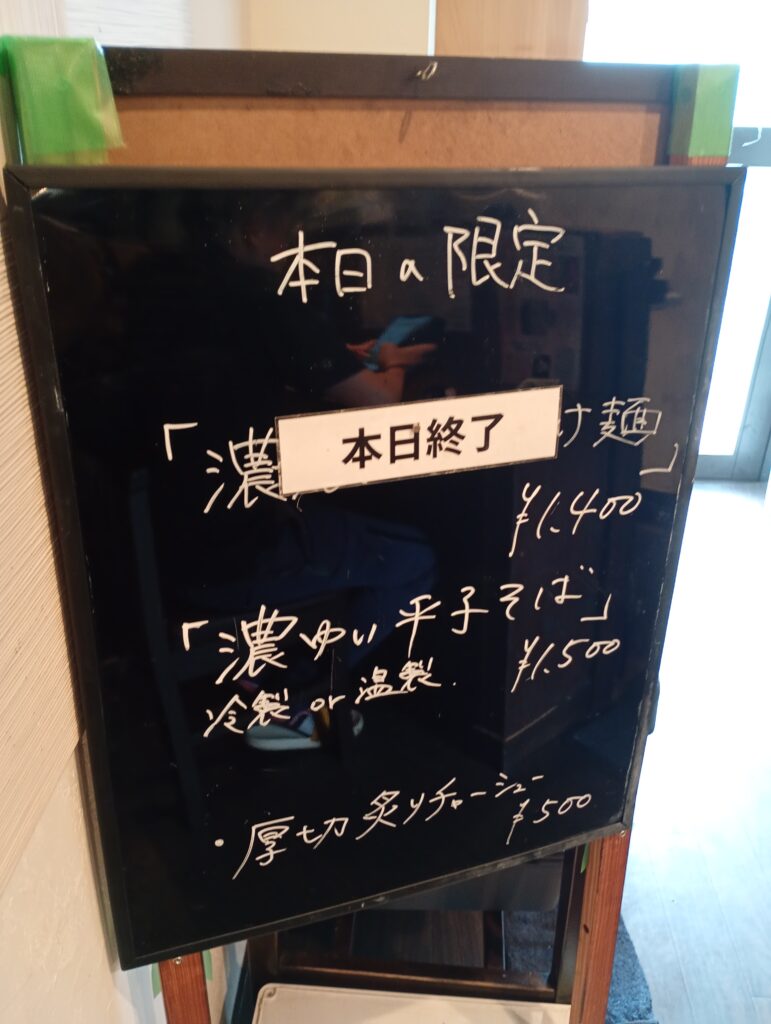 本日の限定
「濃
本日終了
け麺」
¥1,400
「濃ゆい平子そば」
¥1,500
冷製 or 温製.
・厚切炙りチャーシュー
¥500